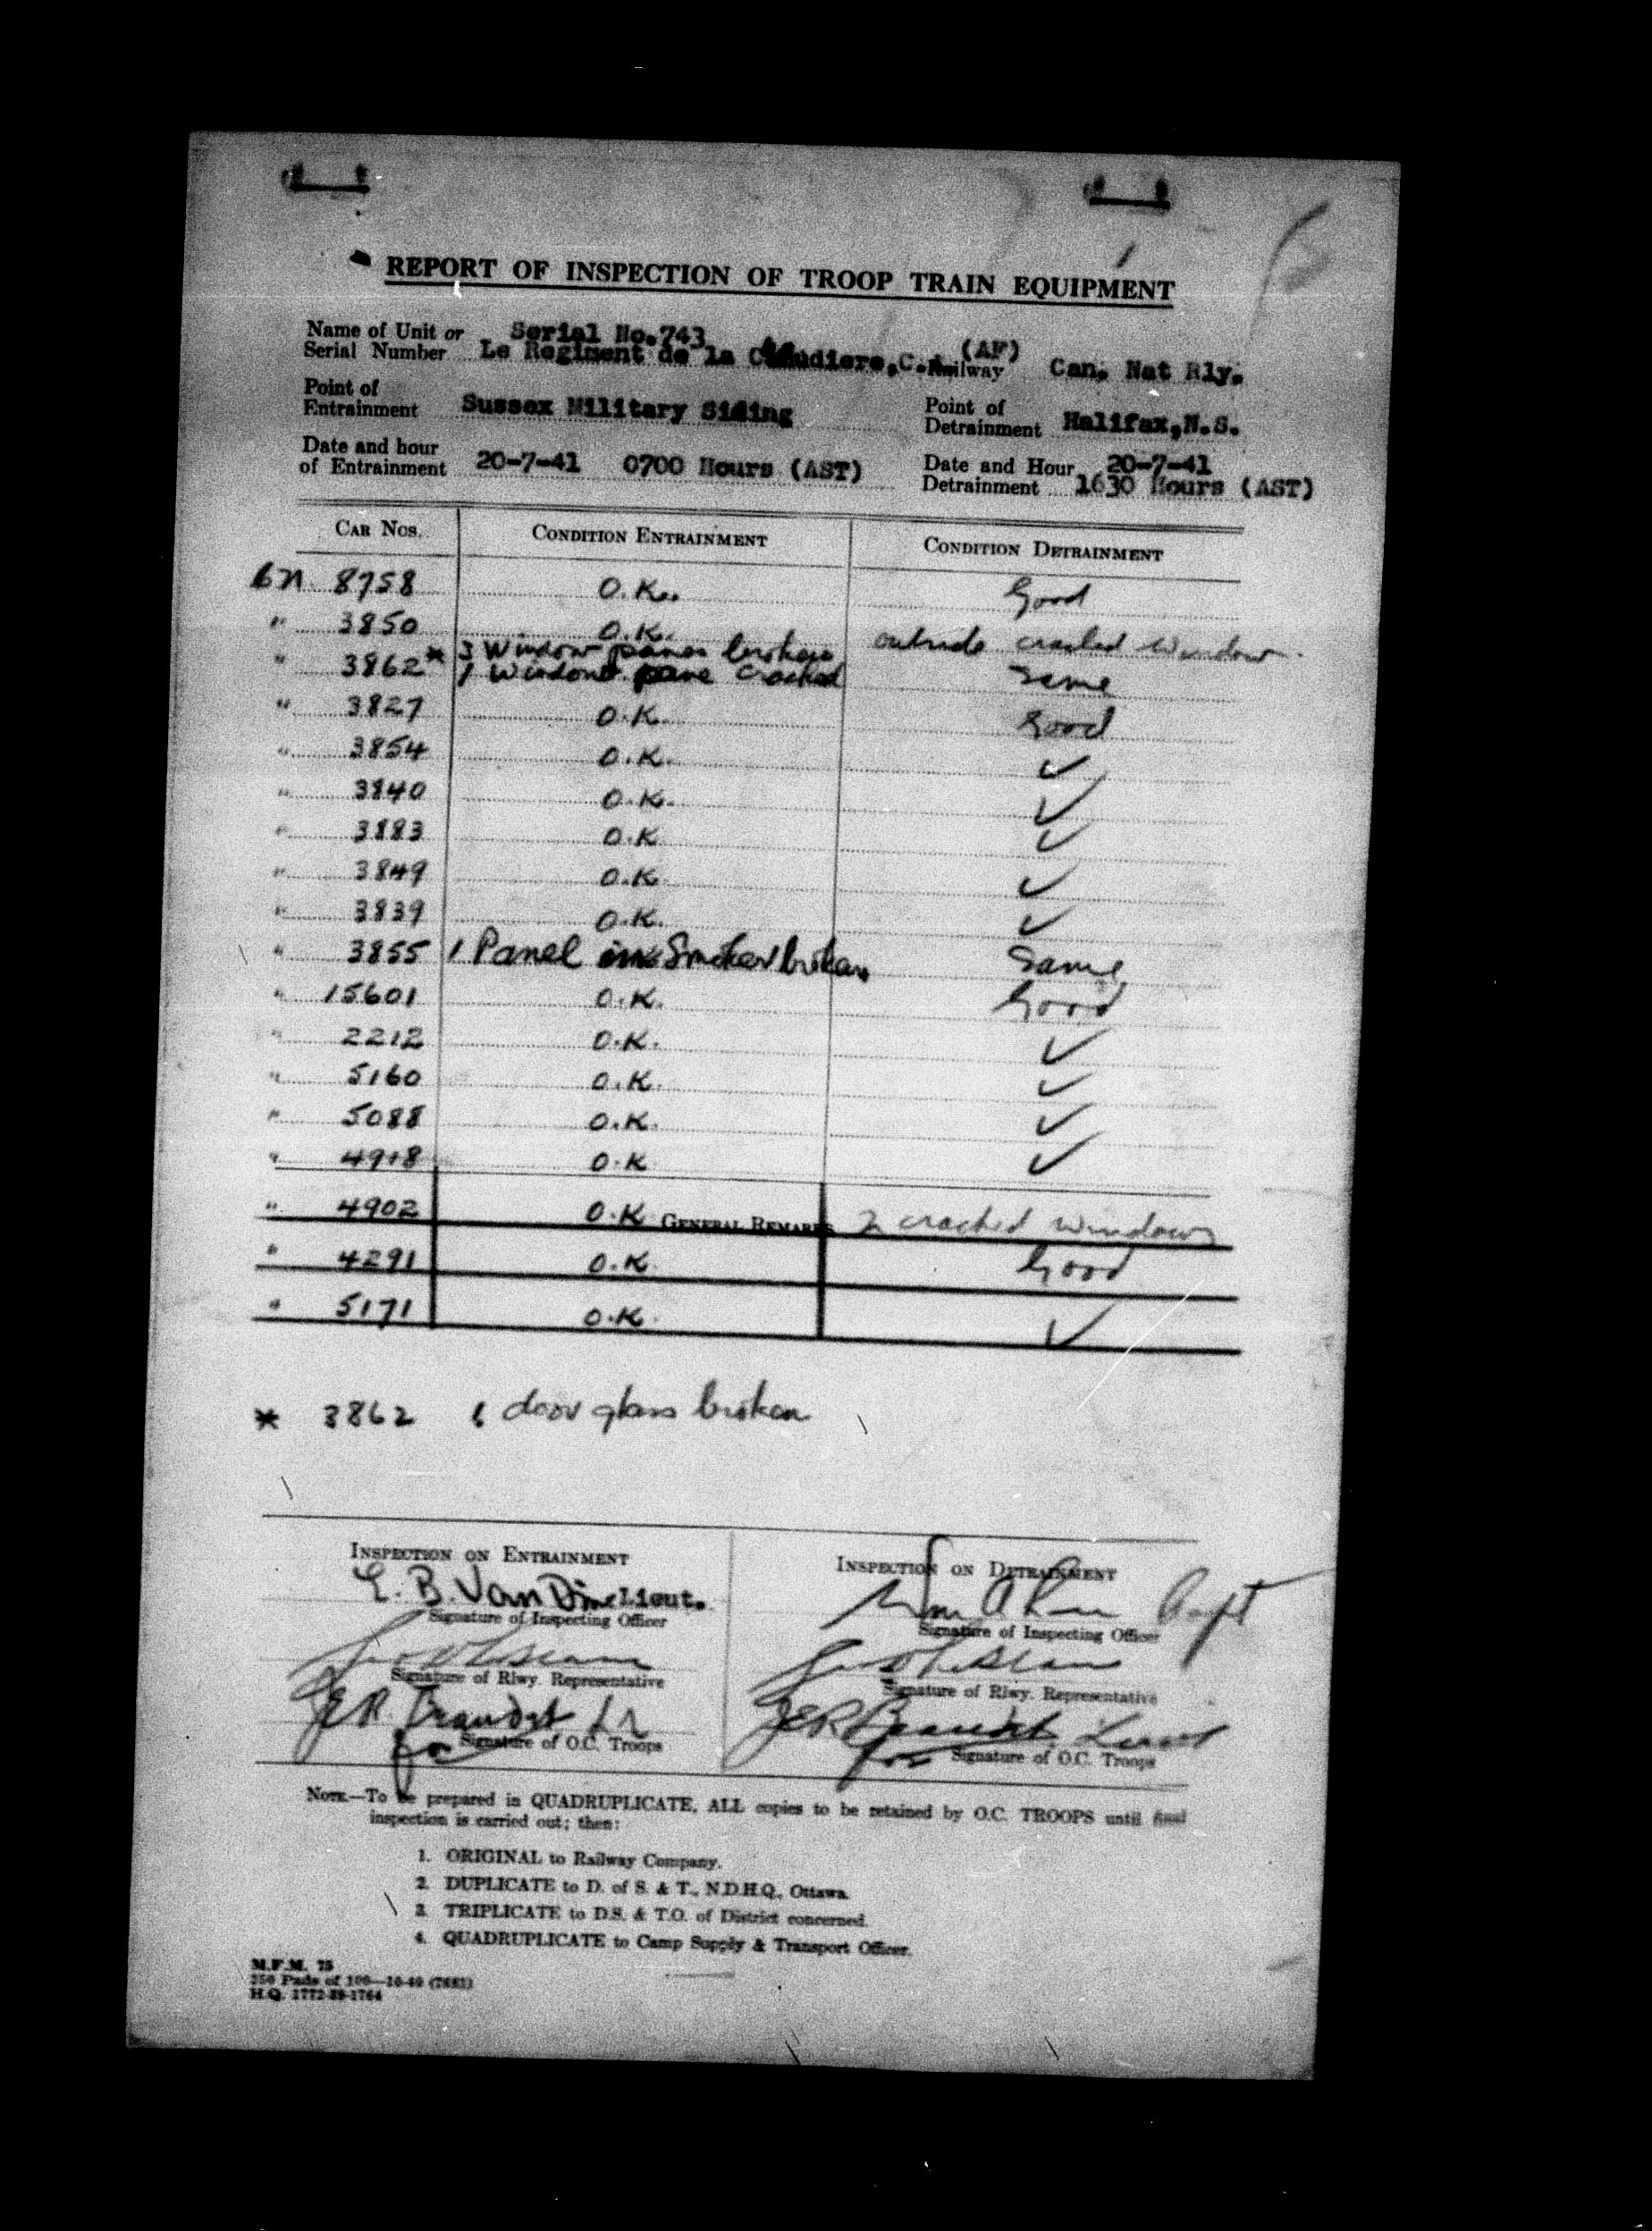 REPORT OF INSPECTION OF TROOP TRAIN EQUIPMENT
Name of Unit or Serial No.743
Serial Number Le Regiment de la Chaudiere,C.A. (AF) Railway Can. Nat Rly.
Point of Entrainment Sussex Military Siding Point of Detrainment Halifax,N.S.
Date and hour of Entrainment 20-7-41 0700 Hours (AST) Date and Hour Detrainment 20-7-41 1630 Hours (AST)
CAR NOS. CONDITION ENTRAINMENT CONDITION DETRAINMENT
8758 O.K. Good
" 3850 O.K. outside cracked window
" 3862* 3 Window panes broken
1 Window pane Cracked Same
" 3827 O.K. Good
" 3854 O.K. ✓
" 3840 O.K. ✓
" 3883 O.K ✓
" 3849 O.K ✓
" 3839 O.K. ✓
" 3855 1 Panel in Smoker broken Same
" 15601 O.K. Good
" 2212 O.K. ✓
" 5160 O.K. ✓
" 5088 O.K. ✓
" 4918 O.K ✓
" 4902 O.K GENERAL REMARKS 2 cracked windows
" 4291 O.K. Good
" 5171 O.K. ✓
* 3862 1 door glass broken
INSPECTION ON ENTRAINMENT INSPECTION ON DETRAINMENT
E. B. Van Dine Lieut. Capt
Signature of Inspecting Officer Signature of Inspecting Officer
Signature of Rlwy. Representative Signature of Rlwy. Representative
J.E.R. Beaudet Lt J.E.R. Beaudet Lieut
for Signature of O.C. Troops for Signature of O.C. Troops
NOTE.—To be prepared in QUADRUPLICATE, ALL copies to be retained by O.C. TROOPS until final
inspection is carried out; then:
1. ORIGINAL to Railway Company.
2. DUPLICATE to D. of S. & T., N.D.H.Q., Ottawa.
3. TRIPLICATE to D.S. & T.O. of District concerned.
4. QUADRUPLICATE to Camp Supply & Transport Officer.
M.F.M. 75
250 Pads of 100—10-40
H.Q. 1772-39-1764